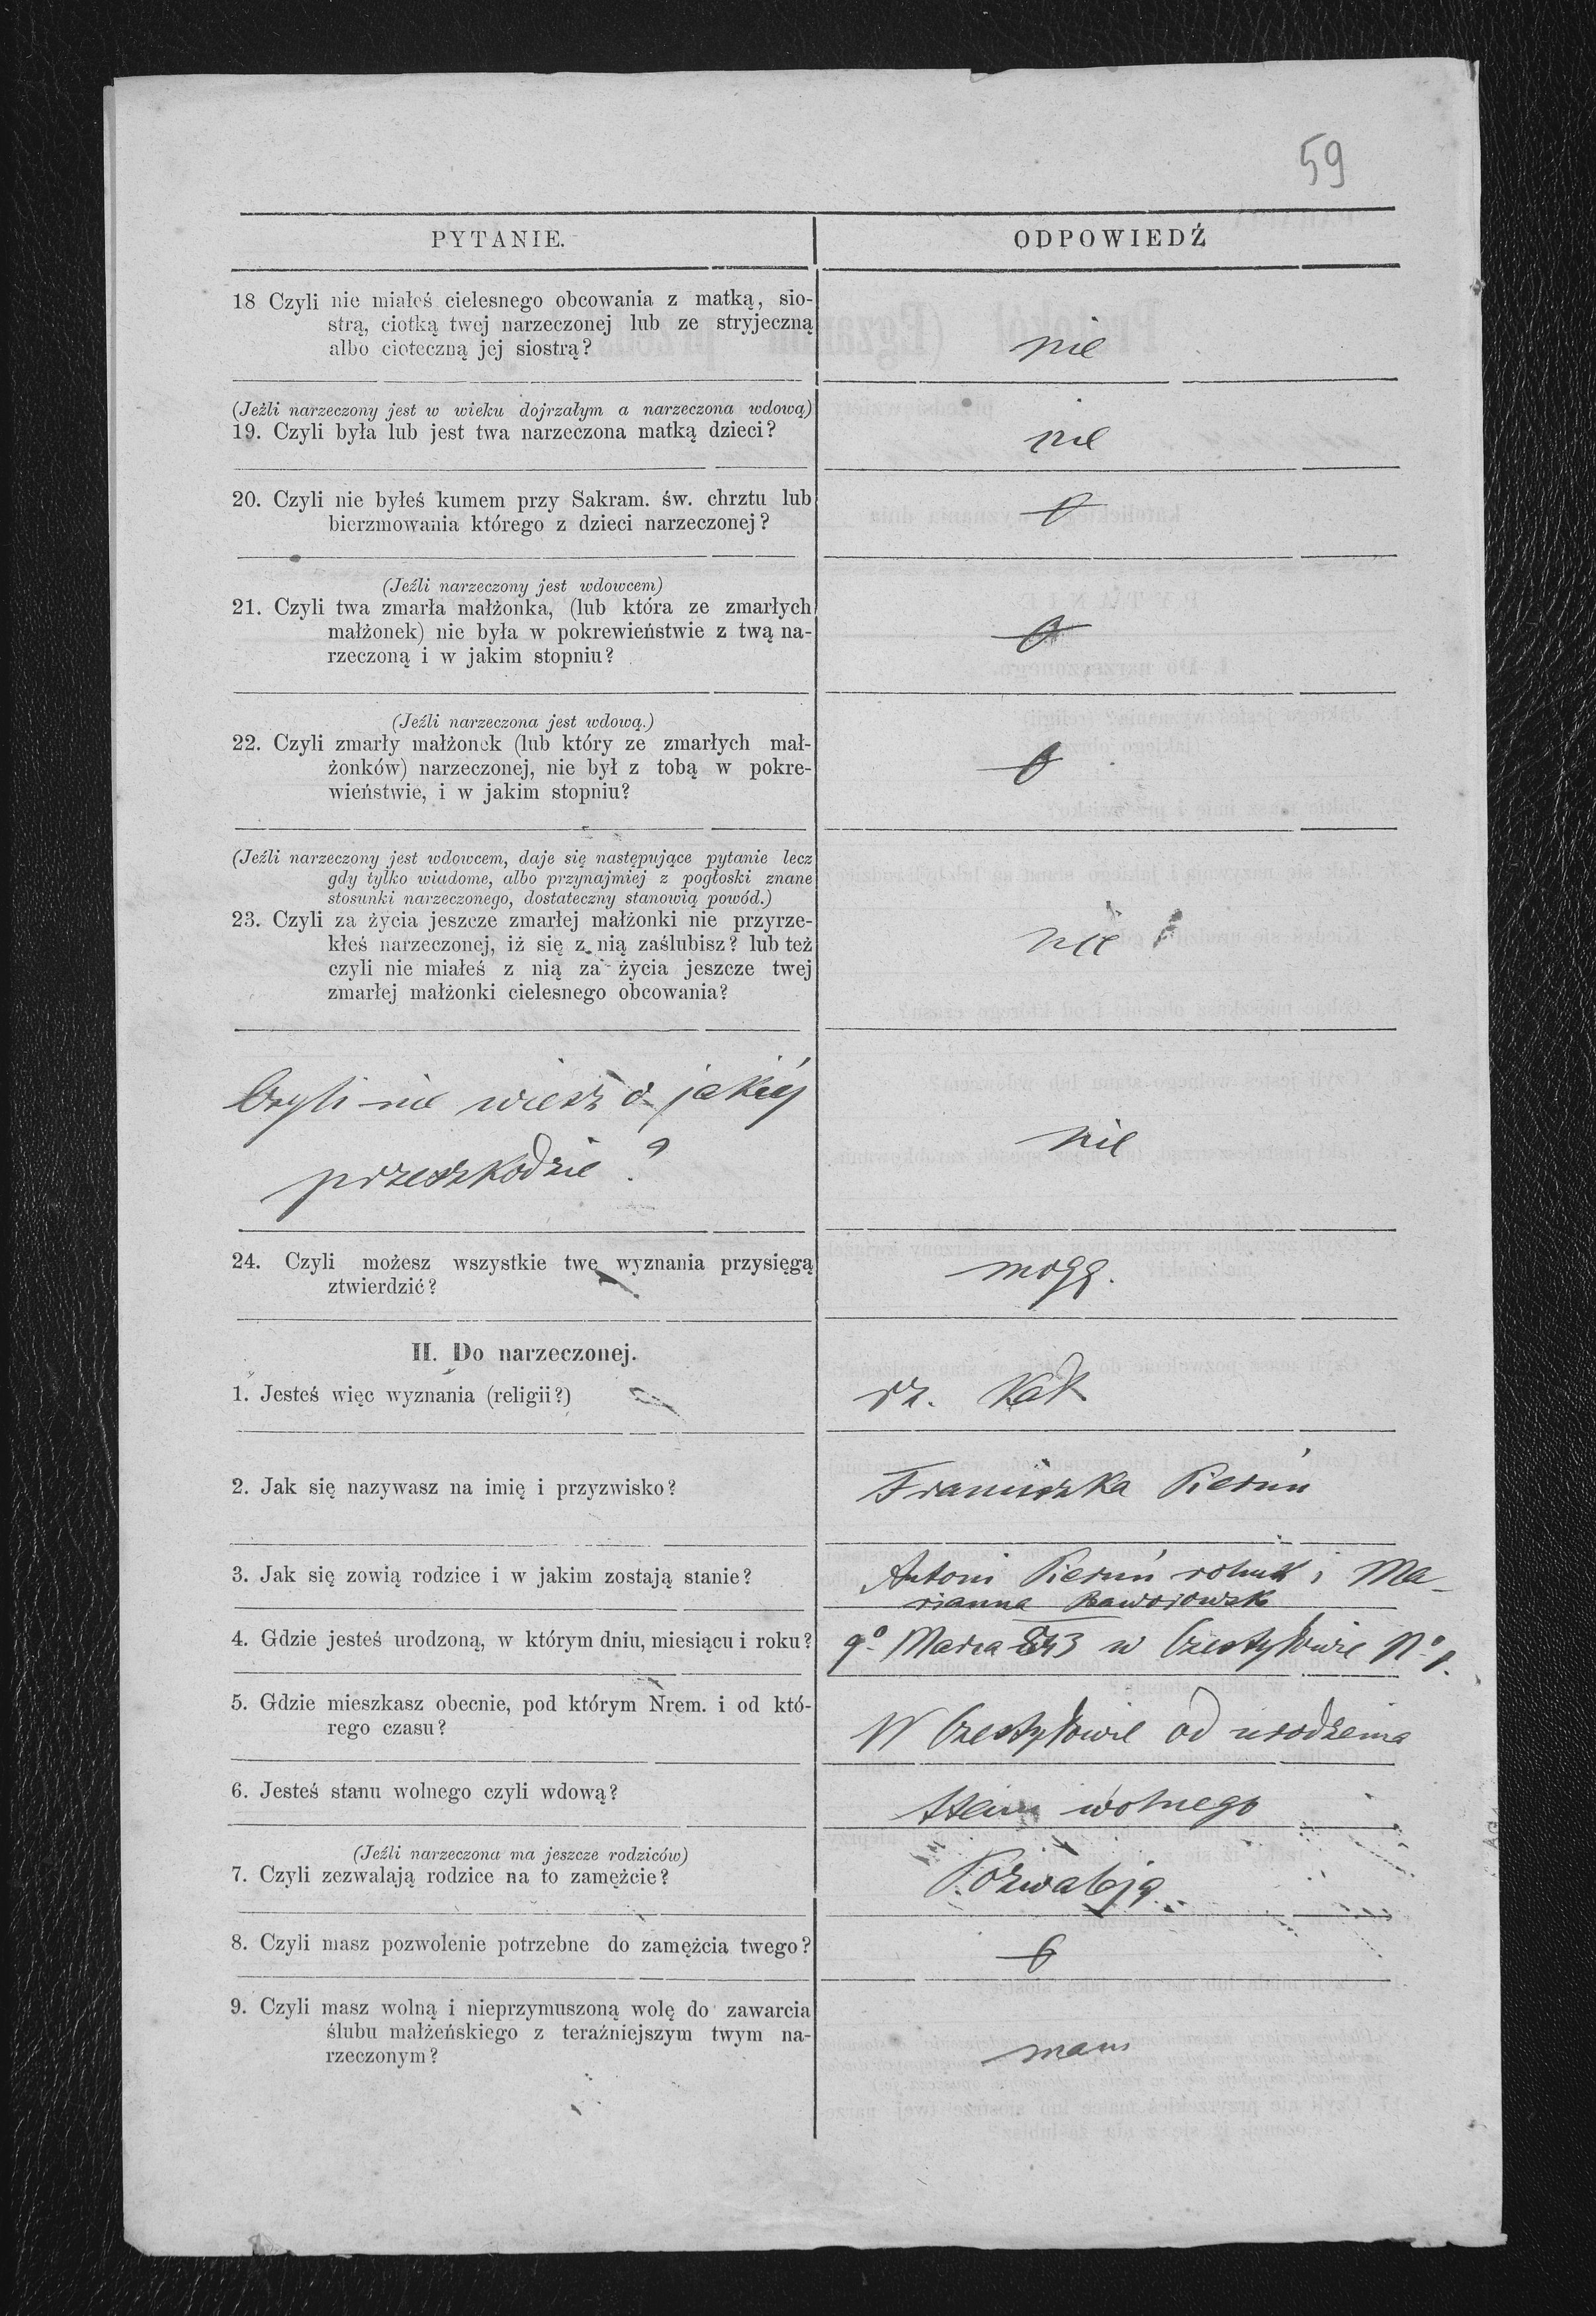 59
PYTANIE.
ODPOWIEDŹ
18 Czyli nie miałeś cielesnego obcowania z matką, sio-
strą, ciotką twej narzeczonej lub ze stryjeczną
albo cioteczną jej siostrą?
nie
(Jeźli narzeczony jest w wieku dojrzałym a narzeczona wdową)
19. Czyli była lub jest twa narzeczona matką dzieci?
nie
20. Czyli nie byłeś kumem przy Sakram. św. chrztu lub
bierzmowania którego z dzieci narzeczonej?
0
(Jeźli narzeczony jest wdowcem)
21. Czyli twa zmarła małżonka, (lub która ze zmarłych
małżonek) nie była w pokrewieństwie z twą na-
rzeczoną i w jakim stopniu?
0
(Jeźli narzeczona jest wdową.)
22. Czyli zmarły małżonek (lub który ze zmarłych mał-
żonków) narzeczonej, nie był z tobą w pokre-
wieństwie, i w jakim stopniu?
0
(Jeźli narzeczony jest wdowcem, daje się następujące pytanie lecz
gdy tylko wiadome, albo przynajmiej z pogłoski znane
stosunki narzeczonego, dostateczny stanowią powód.)
23. Czyli za życia jeszcze zmarłej małżonki nie przyrze-
kłeś narzeczonej, iż się z nią zaślubisz? lub też
czyli nie miałeś z nią za życia jeszcze twej
zmarłej małżonki cielesnego obcowania?
nie
Czyli nie wiesz o jakiéj
przeszkodzie?
nie
24. Czyli możesz wszystkie twe wyznania przysięgą
ztwierdzić?
mogę.
II. Do narzeczonej.
1. Jesteś więc wyznania (religii?)
rz. kat
2. Jak się nazywasz na imię i przyzwisko?
Franciszka Pieruń
3. Jak się zowią rodzice i w jakim zostają stanie?
Antoni Pieruń rolnik i Ma-
rianna
4. Gdzie jesteś urodzoną, w którym dniu, miesiącu i roku?
9º Marca w No 1.
5. Gdzie mieszkasz obecnie, pod którym Nrem. i od któ-
rego czasu?
W od urodzenia
6. Jesteś stanu wolnego czyli wdową?
stanu wolnego
(Jeźli narzeczona ma jeszcze rodziców)
7. Czyli zezwalają rodzice na to zamęźcie?
Pozwalają
8. Czyli masz pozwolenie potrzebne do zamężcia twego?
0
9. Czyli masz wolną i nieprzymuszoną wolę do zawarcia
ślubu małżeńskiego z teraźniejszym twym na-
rzeczonym?
mam